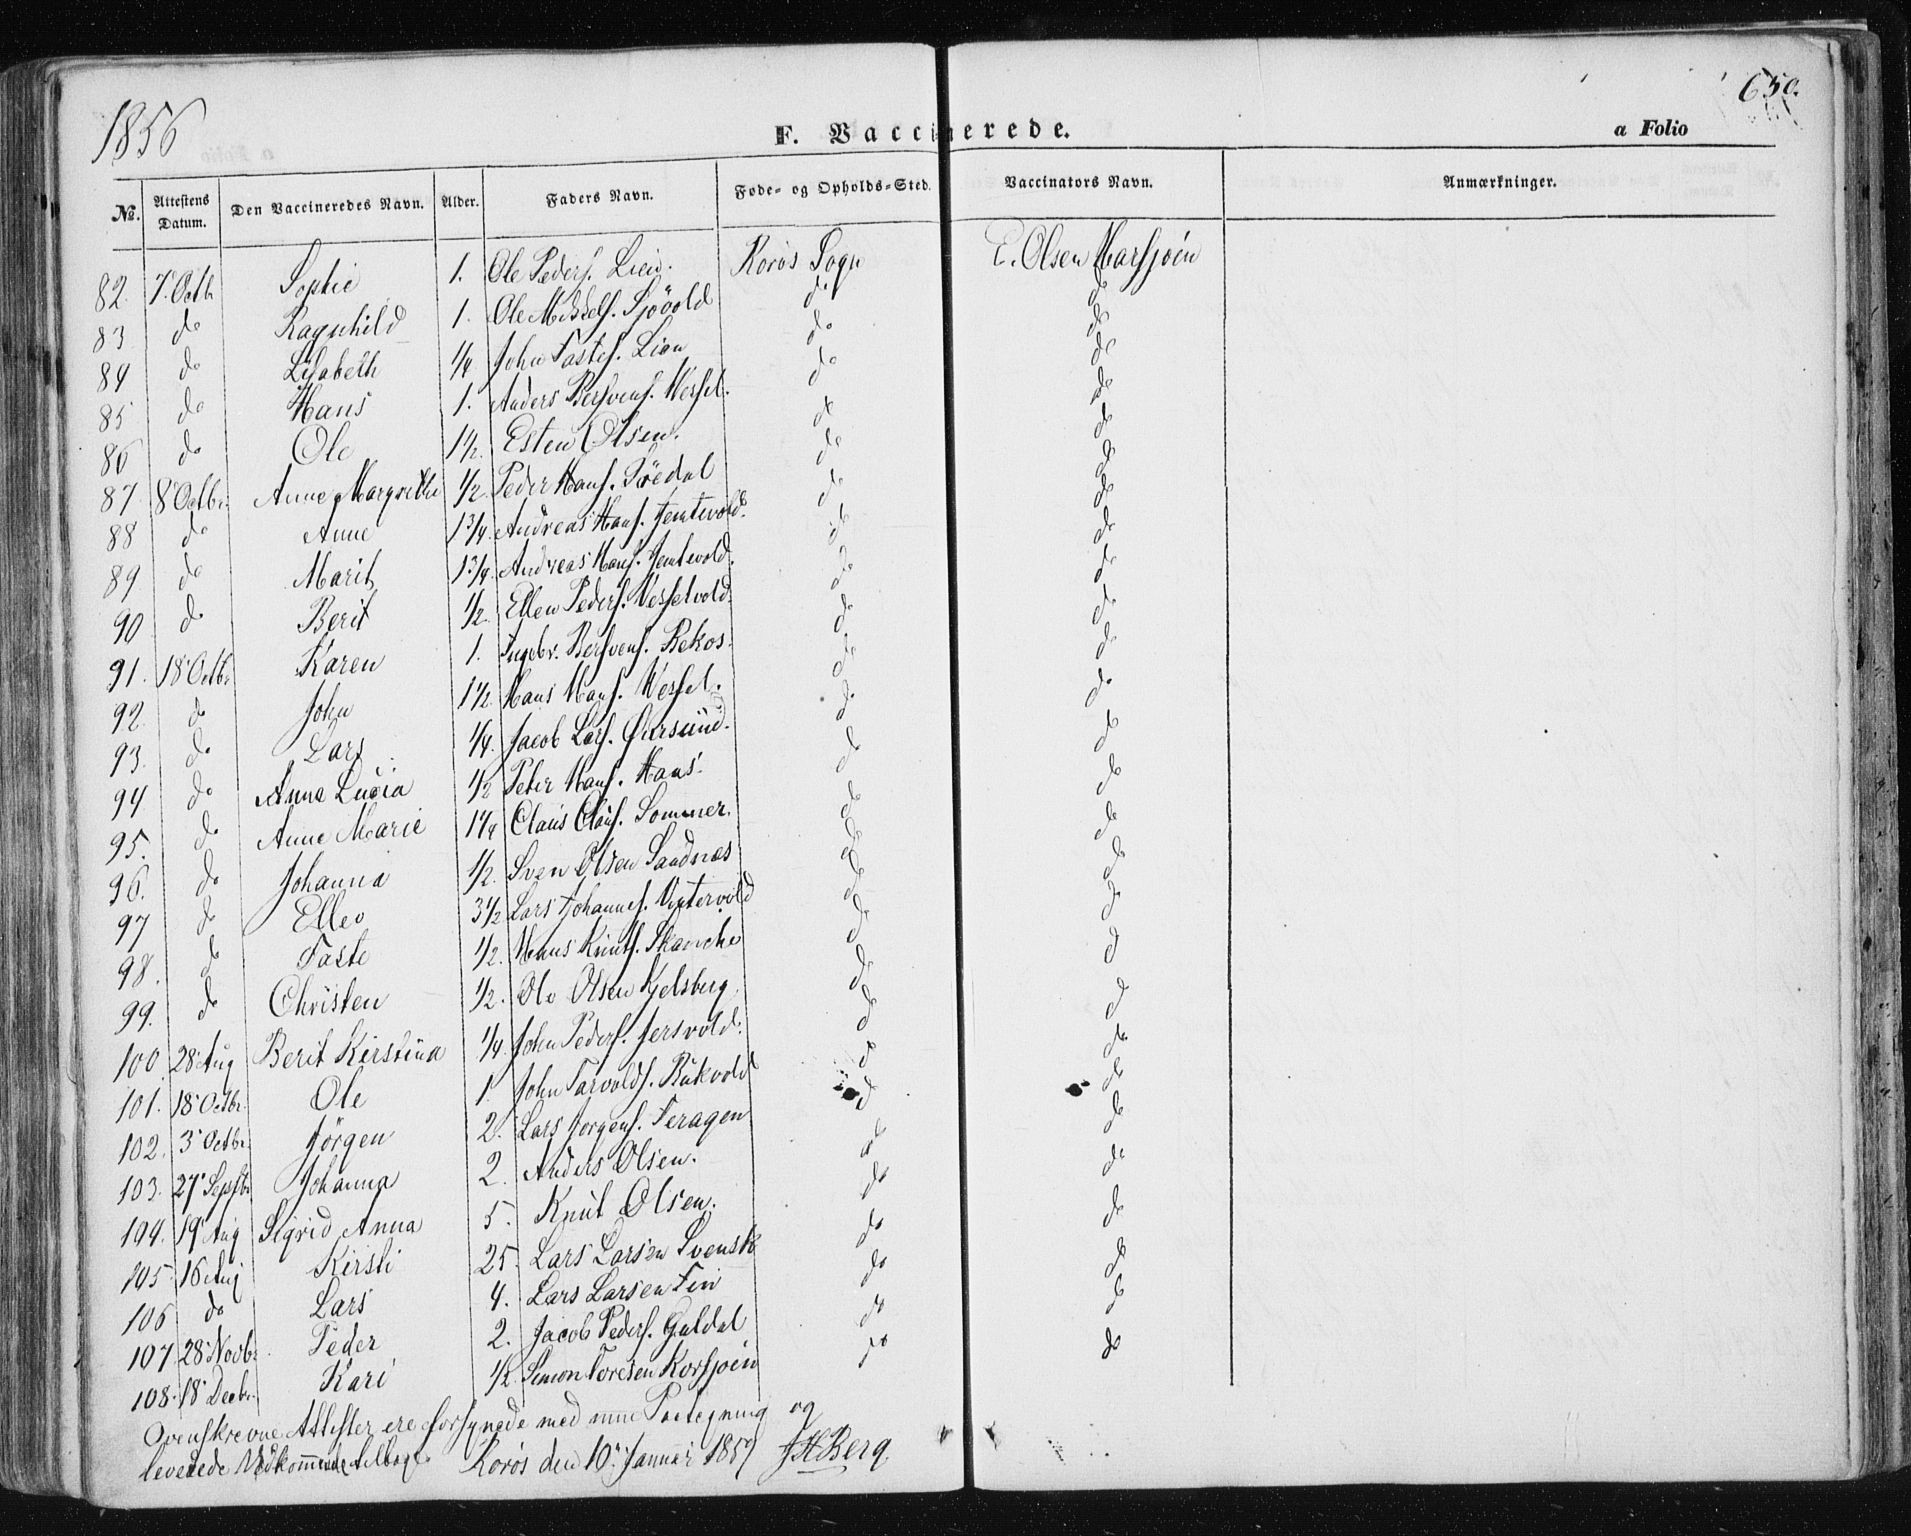 1856
650.
F. Vaccinerede.
a Folio
No. Attestens Datum. Den Vaccineredes Navn. Alder. Faders Navn. Føde- og Opholds-Sted. Vaccinators Navn. Anmærkninger.
82. 7. Octb Sophie 1. Ole Peders. Lien. Rorøs Sogn E. Olsen Harsjøen
83 do Ragnhild 1. Ole Mikkels. Sjövold do do
84 do Lisabeth 1/4 John Tastes. Lien do do
85 do Hans 1. Anders Bersvens. Wessel. do do
86 do Ole 1 1/2. Esten Olsen. do do
87 8 Octbr. Anne Margrethe 1/2. Peder Hans. do do
88 do Anne 1 3/4. Andreas Hans. Jemtvold. do do
89 do Marit 1 3/4. Andreas Hans. Jemtvold. do do
90 do Berit 1/2. Ellen Peders. Wesselvold. do do
91. 18 Octbr Karen 1. Ingebr. Bersvens. Rekos. do do
92. do John 1 1/2. Hans Hans. Wessel. do do
93. do Lars 1/4. Jacob Lars. Øirsund. do do
94 do Anna Lucia 1/2 Peter Hans. Haus. do do
95. do Anne Marie 1 1/4 Claus Claus. Sommer. do do
96. do Johanna 1/2. Sven Olsen Sandnæs do do
97 do Ellev 3 1/2 Lars Johannes. Vintervold do do
98. do Taste 1/2. Hans Knuts. Skancke do do
99. do Christen 1/2. Ole Olsen Kjelsberg. do do
100. 28 Aug Berit Kirstina 1/4. John Peders. Jersvold. do do
101. 18 Octbr. Ole 1. John Tarvolds. do do
102. 3 Octbr. Jörgen 2. Lars Jorgens. Feragen do do
103. 27 Septbr Johanna 2. Anders Olsen. do do
104. 19 Aug Sigrid Anna 5. Knut Olsen. do do
105 16 Aug Kirsti 25. Lars Larsen Svensk do do
106 do Lars 4. Lars Larsen Fin do do
107 28 Novbr. Peder 2. Jacob Peders. Galdal do do
108. 18 Decbr. Kari 1/2. Simon Toresen Korssjøen do do
Ovenskrevne Attester ere forsynede med min Paategning og
leverede Vedkommende tilbage Rorøs den 10. Januar 1857 JHBerg